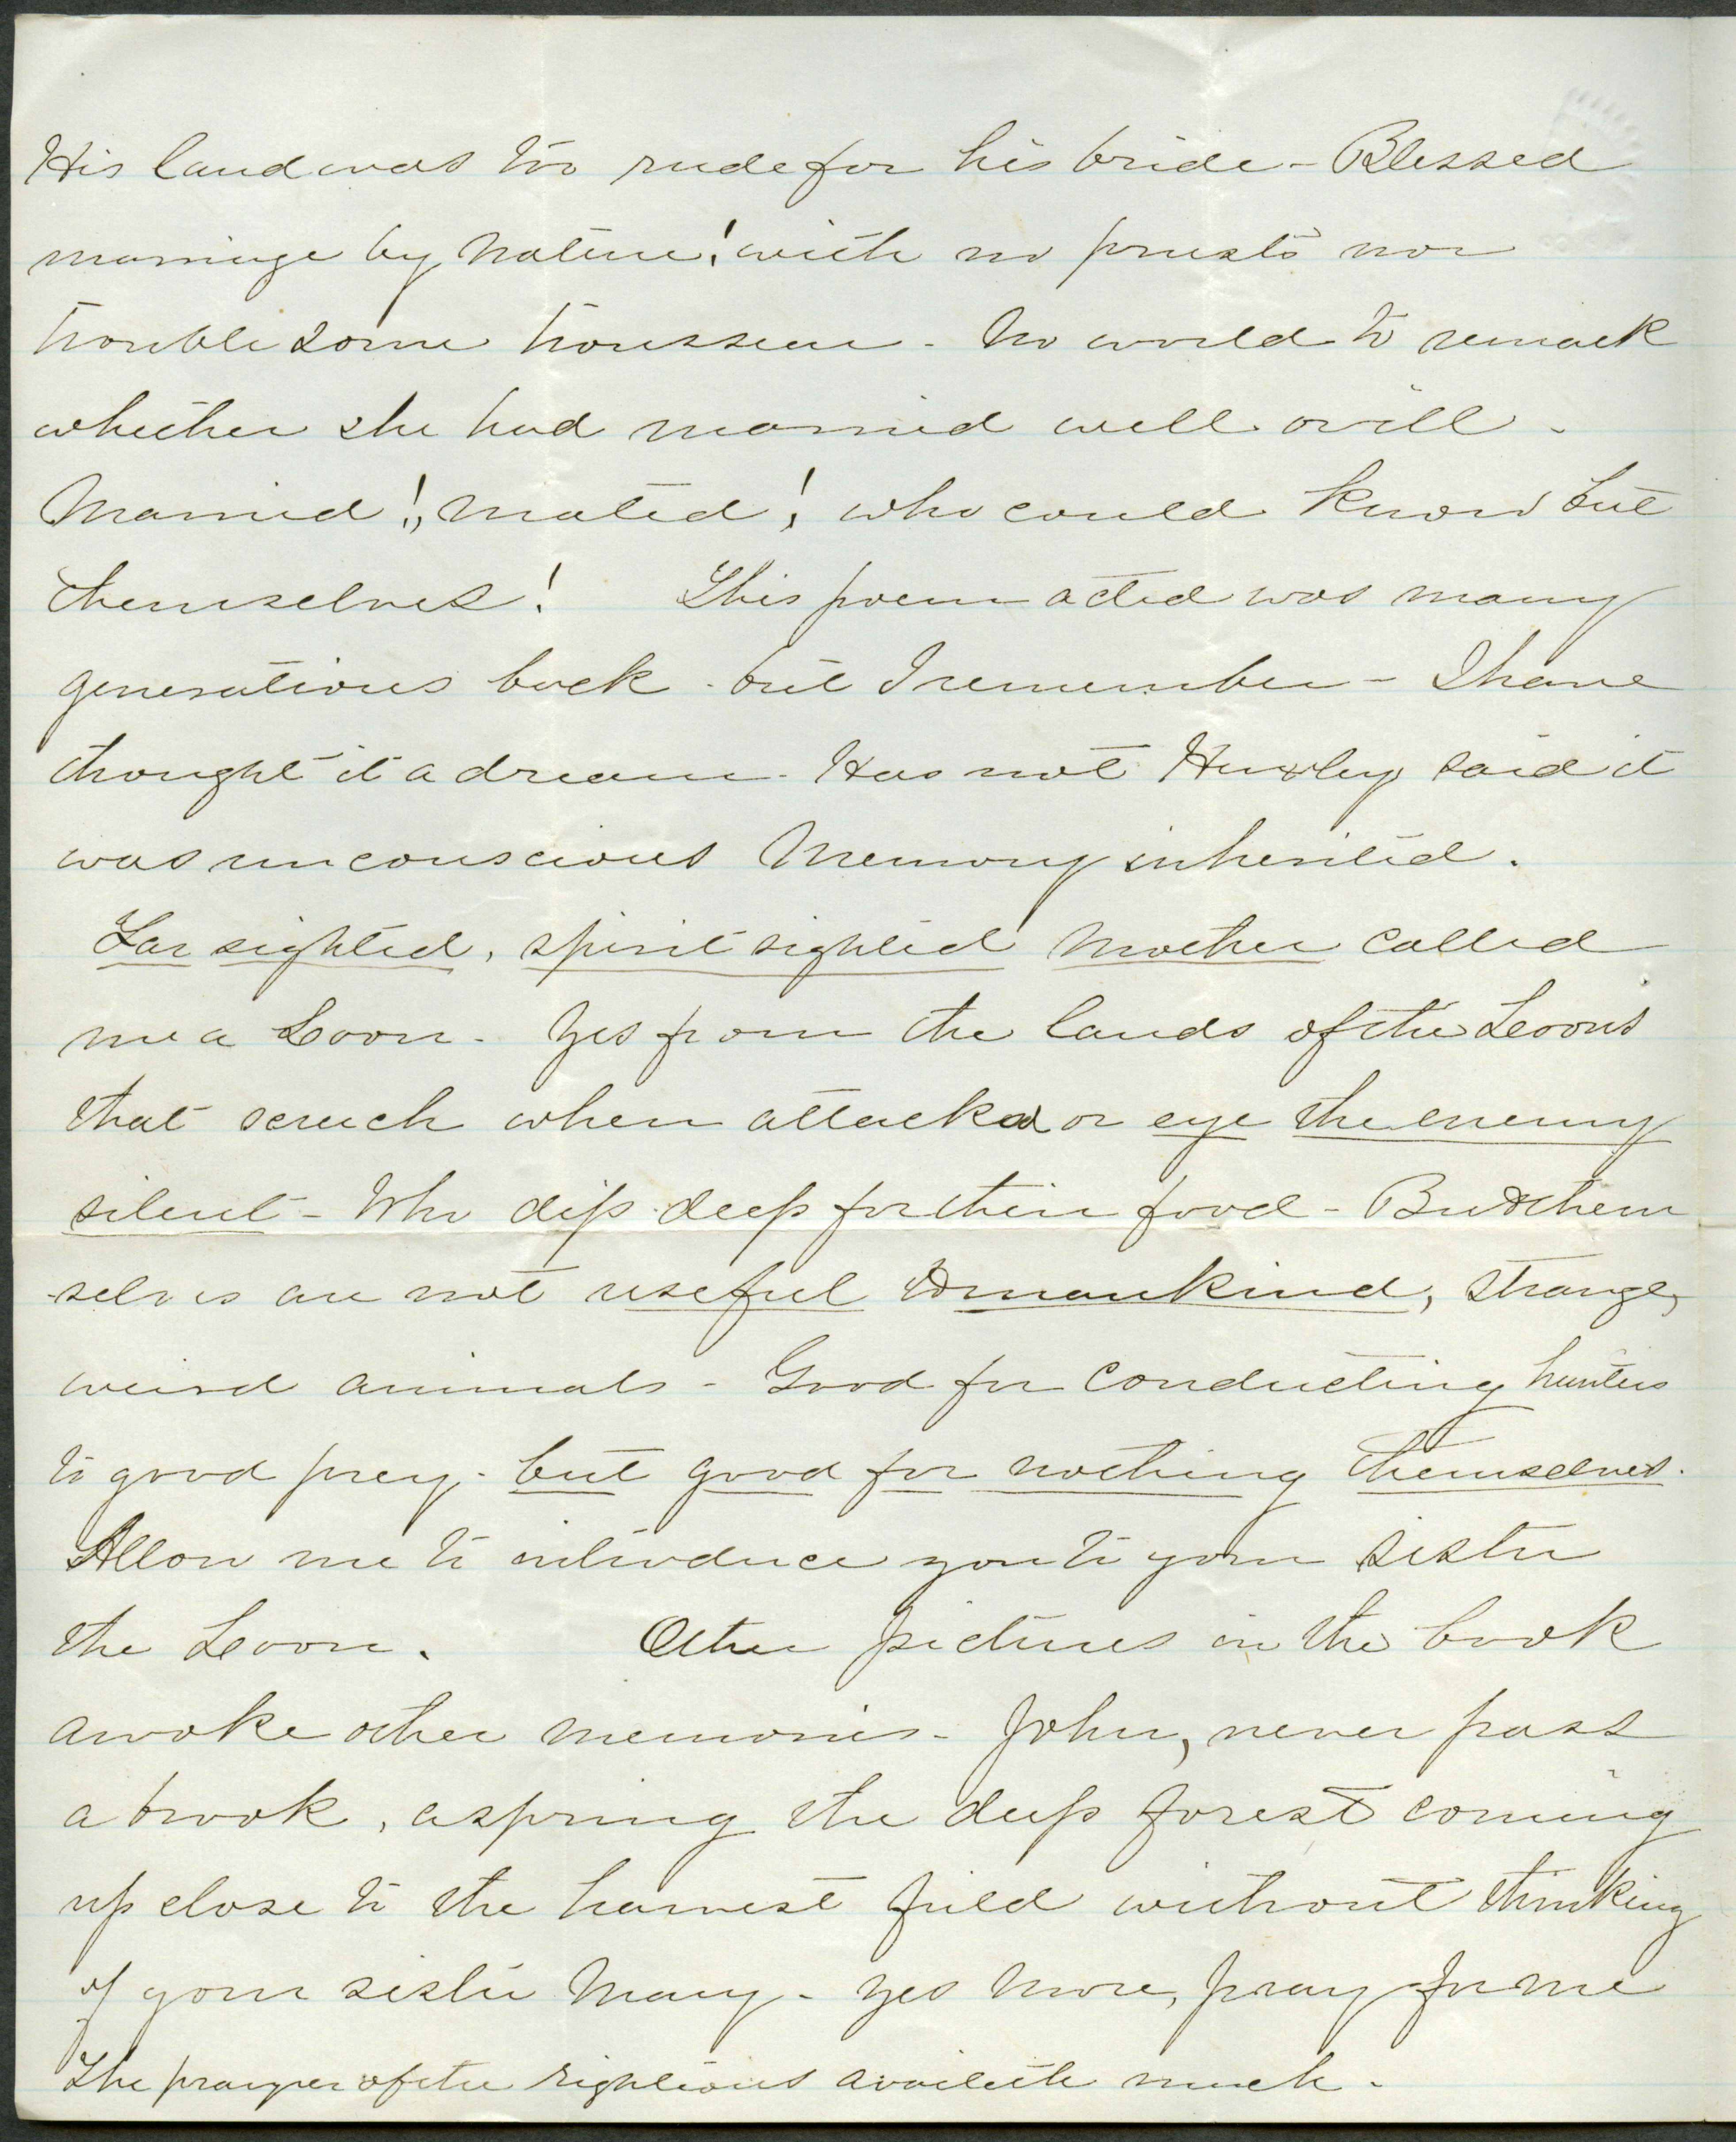 His land was too rude for his bride - Blessed
marriage by Nature! with no priests nor
troublesome trousseau - No world to remark
whether she had married well or ill -
Married!, Mated! who could know but
themselves! This poem acted was many
generations back - but I remember - I have
thought it a dream - Has not Huxley said it
was unconscious Memory inherited.
Far sighted, spirit sighted Mother called
me a Loon - Yes from the lands of the Loons
that screech when attacked or eye the enemy
silent - Who dip deep for their food - But them
-selves are not useful to mankind, strange,
weird animals - Good for conducting hunters
to good prey - but good for nothing themselves.
Allow me to introduce you to your sister
the Loon. Other pictures in the book
awoke other memories - John, never pass
a brook, a spring the deep forest coming
up close to the harvest field without thinking
of your sister Mary - Yes more, pray for me
The prayer of the righteous availeth much -